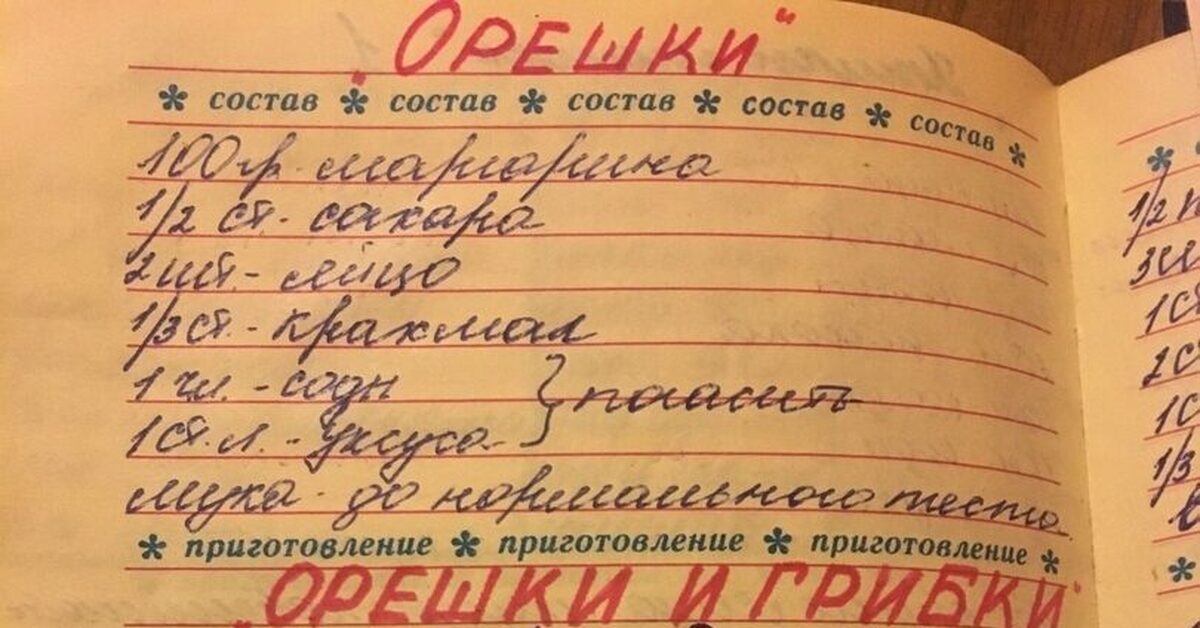 „ОРЕШКИ"
* состав * состав * состав * состав * состав *
100 гр. маргарина
1/2 ст. сахара
2 шт. - яйцо
1/3 ст. - крахмал
1 ч.л. - соды } погасить
1 ст. л. - уксуса
мука - до нормального теста
* приготовление * приготовление * приготовление *
„ОРЕШКИ И ГРИБКИ"
1/2
3
1 ст
2 ст
1 с
1/3